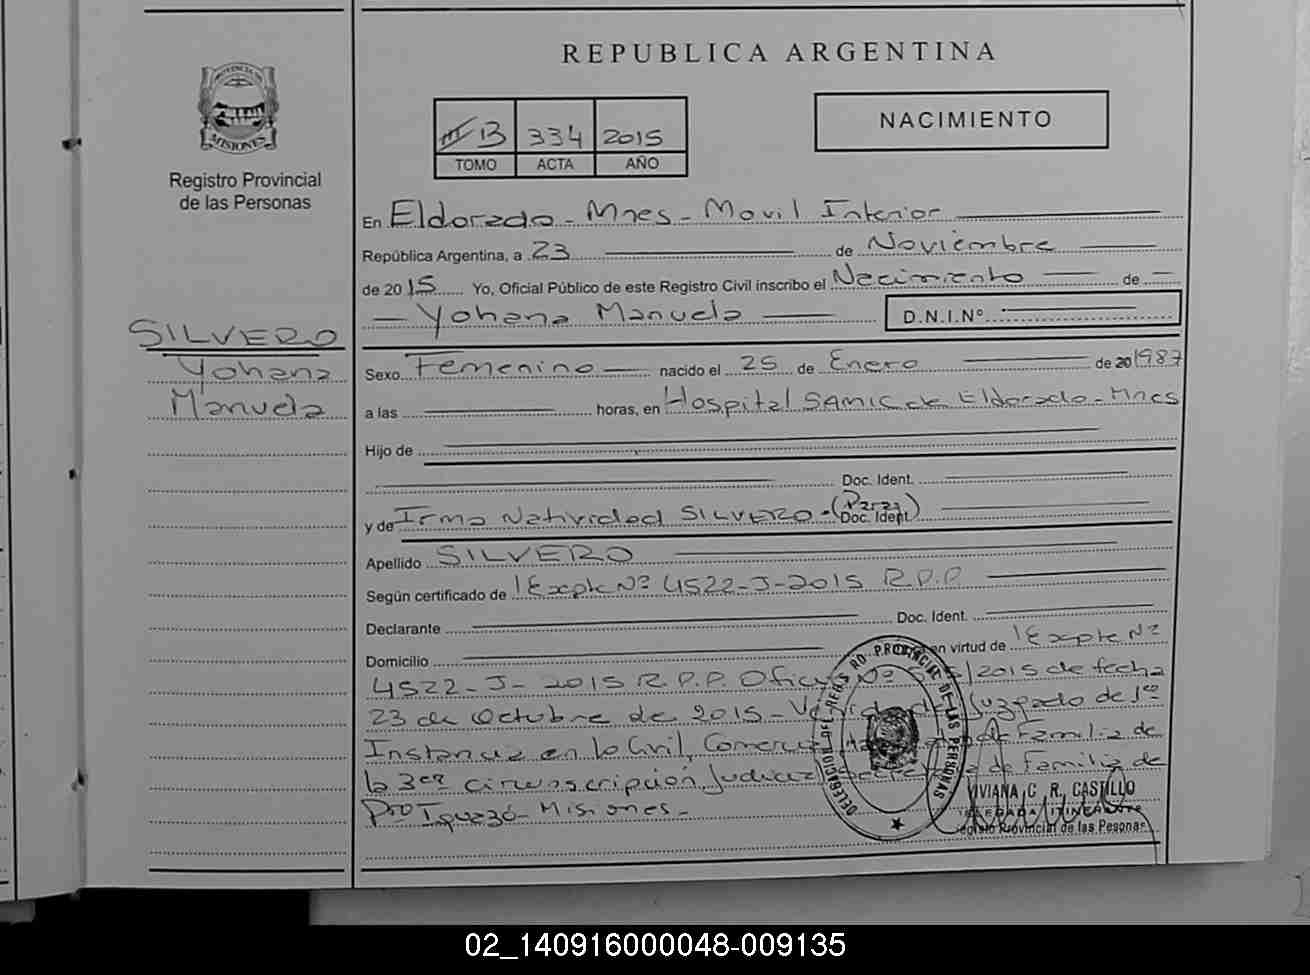 REPUBLICA ARGENTINA
PROVINCIA DE
MISIONES
Registro Provincial
de las Personas
III B 334 2015
TOMO ACTA AÑO
NACIMIENTO
En Eldorado - Mnes - Movil Interior
República Argentina, a 23 de Noviembre
de 2015 Yo, Oficial Público de este Registro Civil inscribo el Nacimiento de
Yohana Manuela D.N.I.Nº
SILVERO
Yohana
Manuela
Sexo Femenino nacido el 25 de Enero de 20 1987
a las horas, en Hospital SAMIC de Eldorado - Mnes
Hijo de
Doc. Ident.
y de Irma Natividad SILVERO - Doc. Ident.
Apellido SILVERO
Según certificado de Expte Nº 4522-J-2015 R.P.P
Declarante Doc. Ident.
Domicilio en virtud de Expte Nº
4522-J-2015 R.P.P. Nº /2015 de fecha
23 de Octubre de 2015 - Juzgado de 1ra
Instancia en lo Civil, de Familia de
la 3er circunscripción Judicial de Familia de
Pto Iguazú - Misiones -
DELEGACION DEL REGISTRO PROVINCIAL DE LAS PERSONAS
VIVIANA C. R. CASTILLO
DELEGADA ITINERANTE
Registro Provincial de las Personas
02_140916000048-009135